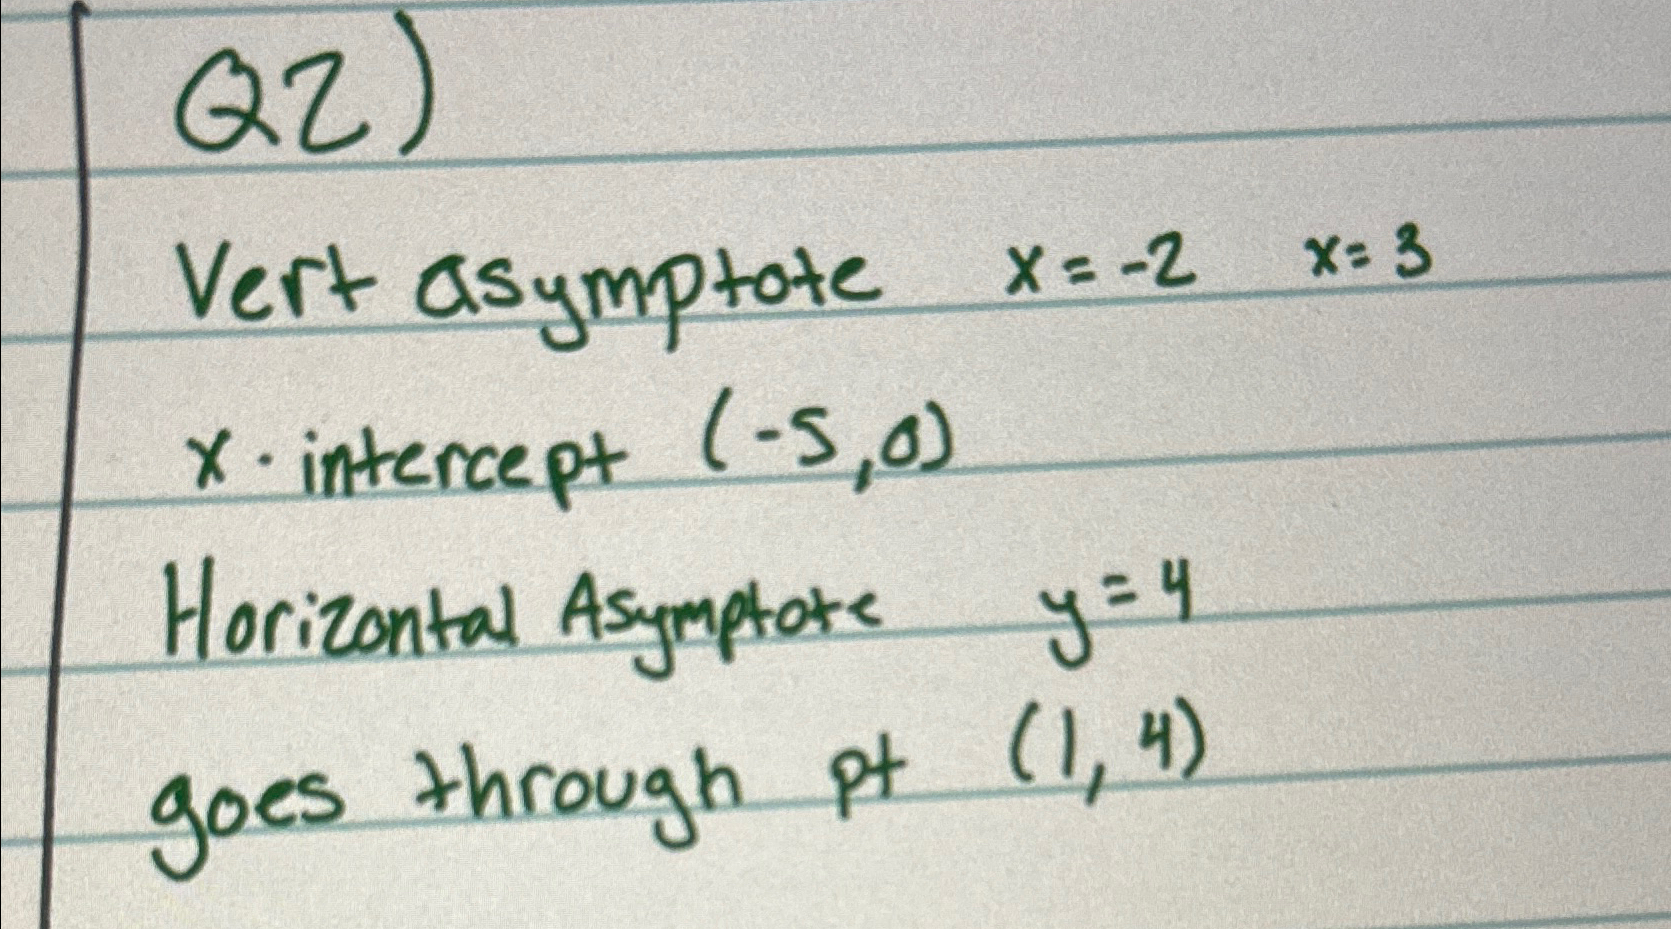 Q2)
Vert asymptote x = -2 x = 3
x - intercept (-5, 0)
Horizontal Asymptote y = 4
goes through pt (1, 4)